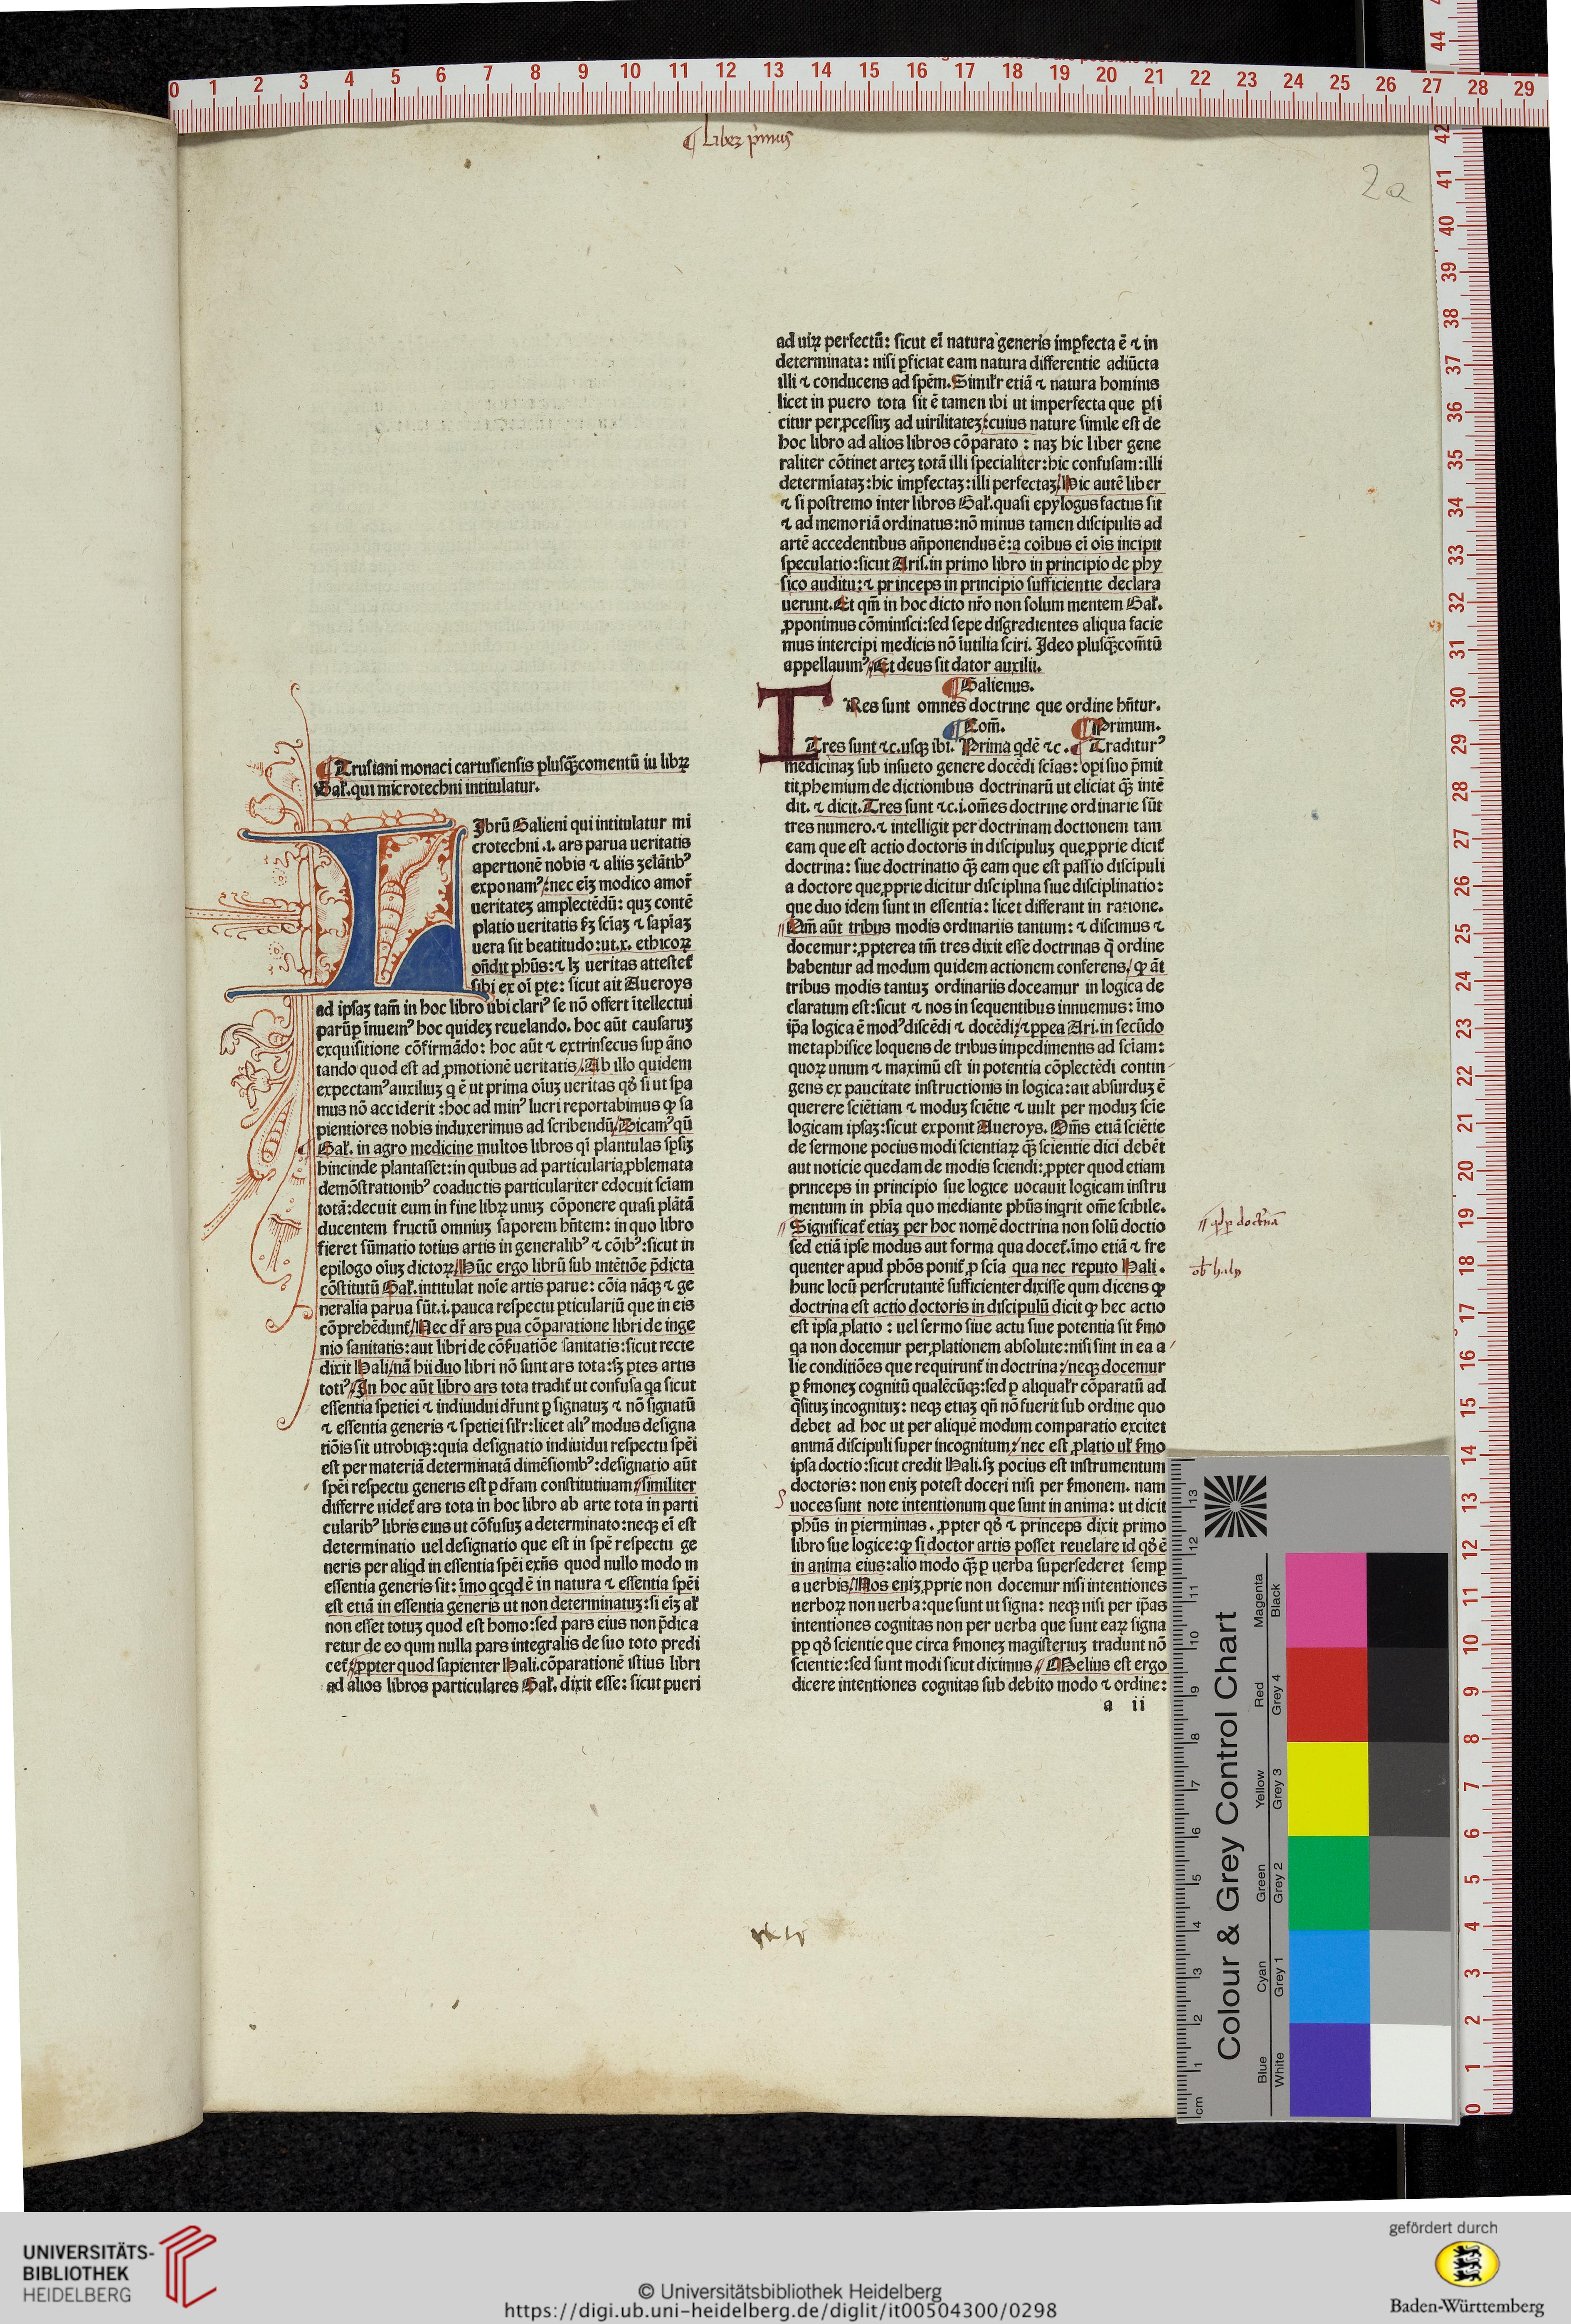 ¶ Liber p̄mus
2a
¶ Trusiani monaci cartusiensis plusq̄ȝcomentū iu libꝝ
Gal̄. qui microtechni intitulatur.
LJbrū Galieni qui intitulatur mi
crotechni .i. ars parua ueritatis
apertionē nobis ⁊ aliis zelātibꝰ
exponamꝰ: nec eiȝ modico amor̄
ueritateȝ amplectēdū: quȝ contē
platio ueritatis ẜȝ scīaȝ ⁊ sapīaȝ
uera sit beatitudo: ut .x. ethicoꝝ
on̄dit phūs: ⁊ lȝ ueritas attestet̄
sibi ex oī pte: sicut ait Aueroys
ad ipsaȝ tam̄ in hoc libro ubi clariꝰ se nō offert ītellectui
parūꝑ īnueimꝰ hoc quideȝ reuelando. hoc aūt causaruȝ
exquisitione cōfirmādo: hoc aūt ⁊ extrinsecus suꝑ āno
tando quod est ad ꝓmotionē ueritatis. Ab illo quidem
expectamꝰ auxiliuȝ q ē ut prima oīuȝ ueritas qḋ si ut spa
mus nō acciderit: hoc ad minꝰ lucri reportabimus ꝙ sa
pientiores nobis induxerimus ad scribendū. Dicamꝰ qū
Gal̄. in agro medicine multos libros qi plantulas spsiȝ
hincinde plantasset: in quibus ad particularia ꝓblemata
demōstrationibꝰ coaductis particulariter edocuit scīam
totā: decuit eum in fine libꝝ unuȝ cōponere quasi plātā
ducentem fructū omniuȝ saporem hn̄tem: in quo libro
fieret sūmatio totius artis in generalibꝰ ⁊ cōibꝰ: sicut in
epilogo oīuȝ dictoꝝ. Hūc ergo librū sub intētiōe p̄dicta
cōstitutū Gal̄. intitulat noīe artis parue: cōia nāqȝ ⁊ ge
neralia parua sūt .i. pauca respectu ꝑticulariū que in eis
cōprehēdunt̄. Nec dr̄ ars pua cōparatione libri de inge
nio sanitatis: aut libri de cōẜuatiōe sanitatis: sicut recte
dixit Hali. nā hii duo libri nō sunt ars tota: sȝ ꝑtes artis
totiꝰ. Jn hoc aūt libro ars tota tradit̄ ut confusa qa sicut
essentia spetiei ⁊ indiuidui dr̄unt ꝑ signatuȝ ⁊ nō signatū
⁊ essentia generis ⁊ spetiei sil̄r: licet aliꝰ modus designa
tiōis sit utrobiqȝ: quia designatio indiuidui respectu spēi
est per materiā determinatā dimēsionibꝰ: designatio aūt
spēi respectu generis est ꝑ dr̄am constitutiuam: similiter
differre uidet̄ ars tota in hoc libro ab arte tota in parti
cularibꝰ libris eius ut cōfusuȝ a determinato: neqȝ ei est
determinatio uel designatio que est in spē respectu ge
neris per aliqd in essentia spēi exn̄s quod nullo modo in
essentia generis sit: īmo qcqd ē in natura ⁊ essentia spēi
est etiā in essentia generis ut non determinatuȝ: si eiȝ al̄
non esset totuȝ quod est homo: sed pars eius non p̄dica
retur de eo qum nulla pars integralis de suo toto predi
cet̄: ꝓpter quod sapienter Hali. cōparationē istius libri
ad alios libros particulares Gal̄. dixit esse: sicut pueri
ad uiꝝ perfectū: sicut ei natura generis imꝑfecta ē ⁊ in
determinata: nisi ꝑficiat eam natura differentie adiūcta
illi ⁊ conducens ad spēm. Simil̄r etiā ⁊ natura hominis
licet in puero tota sit ē tamen ibi ut imperfecta que ꝑfi
citur per ꝓcessuȝ ad uirilitateȝ: cuius nature simile est de
hoc libro ad alios libros cōparato: naȝ hic liber gene
raliter cōtinet arteȝ totā illi specialiter: hic confusam: illi
determīataȝ: hic imꝑfectaȝ: illi perfectaȝ. Hic autē liber
⁊ si postremo inter libros Gal̄. quasi epylogus factus sit
⁊ ad memoriā ordinatus: nō minus tamen discipulis ad
artē accedentibus an̄ponendus ē: a coibus ei ois incipit
speculatio: sicut Aris. in primo libro in principio de phy
sico auditu: ⁊ princeps in principio sufficientie declara
uerunt. Et qm̄ in hoc dicto nr̄o non solum mentem Gal̄.
ꝓponimus cōminisci: sed sepe disgredientes aliqua facie
mus intercipi medicis nō īutilia sciri. Jdeo plusq̄ȝcom̄tū
appellauimꝰ. Et deus sit dator auxilii.
¶ Galienus.
TRes sunt omnes doctrine que ordine hn̄tur.
¶ Com̄. ¶ Primum.
Tres sunt ⁊c. usqȝ ibi. Prima qdē ⁊c. ¶ Traditurꝰ
medicinaȝ sub insueto genere docēdi scīas: opi suo p̄mit
tit ꝓhemium de dictionibus doctrinarū ut eliciat q̄ȝ intē
dit. ⁊ dicit. Tres sunt ⁊c .i. om̄es doctrine ordinarie sūt
tres numero. ⁊ intelligit per doctrinam doctionem tam
eam que est actio doctoris in discipuluȝ que ꝓprie dicit̄
doctrina: siue doctrinatio q̄ȝ eam que est passio discipuli
a doctore que ꝓprie dicitur disciplina siue disciplinatio:
que duo idem sunt in essentia: licet differant in ratione.
Qm̄ aūt tribus modis ordinariis tantum: ⁊ discimus ⁊
docemur: ꝓpterea tm̄ tres dixit esse doctrinas q̄ ordine
habentur ad modum quidem actionem conferens. ꝙ āt
tribus modis tantuȝ ordinariis doceamur in logica de
claratum est: sicut ⁊ nos in sequentibus innuemus: īmo
ip̄a logica ē modꝰ discēdi ⁊ docēdi: ⁊ ꝓpea Ari. in secūdo
metaphisice loquens de tribus impedimentis ad scīam:
quoꝝ unum ⁊ maximū est in potentia cōplectēdi contin
gens ex paucitate instructionis in logica: ait absurduȝ ē
querere sciētiam ⁊ moduȝ sciētie ⁊ uult per moduȝ scīe
logicam ipsaȝ: sicut exponit Aueroys. Om̄s etiā sciētie
de sermone pocius modi scientiaꝝ q̄ȝ scientie dici debēt
aut noticie quedam de modis sciendi: ꝓpter quod etiam
princeps in principio sue logice uocauit logicam instru
mentum in phīa quo mediante phūs inqrit om̄e scibile.
Significat̄ etiaȝ per hoc nomē doctrina non solū doctio
sed etiā ipse modus aut forma qua docet̄. īmo etiā ⁊ fre
quenter apud phōs ponit̄ ꝓ scīa qua nec reputo Hali.
hunc locū perscrutantē sufficienter dixisse qum dicens ꝙ
doctrina est actio doctoris in discipulū dicit ꝙ hec actio
est ipsa ꝓlatio: uel sermo siue actu siue potentia sit ẜmo
qa non docemur per ꝓlationem absolute: nisi sint in ea a
lie conditiōes que requirunt̄ in doctrina: neqȝ docemur
ꝑ ẜmoneȝ cognitū qualēcūqȝ: sed ꝑ aliqual̄r cōparatū ad
q̄situȝ incognituȝ: neqȝ etiaȝ qn̄ nō fuerit sub ordine quo
debet ad hoc ut per aliquē modum comparatio excitet
animā discipuli super incognitum: nec est ꝓlatio ul̄ ẜmo
ipsa doctio: sicut credit Hali. sȝ pocius est instrumentum
doctoris: non eniȝ potest doceri nisi per ẜmonem. nam
uoces sunt note intentionum que sunt in anima: ut dicit
phūs in pierminias. ꝓpter qḋ ⁊ princeps dixit primo
libro sue logice: ꝙ si doctor artis posset reuelare id qḋ ē
in anima eius: alio modo q̄ȝ ꝑ uerba supersederet semꝑ
a uerbis. Nos eniȝ ꝓprie non docemur nisi intentiones
uerboꝝ non uerba: que sunt ut signa: neqȝ nisi per ip̄as
intentiones cognitas non per uerba que sunt eaꝝ signa
ꝓp qḋ scientie que circa ẜmoneȝ magisteriuȝ tradunt nō
scientie: sed sunt modi sicut diximus. Melius est ergo
dicere intentiones cognitas sub debito modo ⁊ ordine:
a ii
Colour & Grey Control Chart
Blue Cyan Green Yellow Red Magenta
White Grey 1 Grey 2 Grey 3 Grey 4 Black
UNIVERSITÄTS-
BIBLIOTHEK
HEIDELBERG
© Universitätsbibliothek Heidelberg
https://digi.ub.uni-heidelberg.de/diglit/it00504300/0298
gefördert durch
Baden-Württemberg